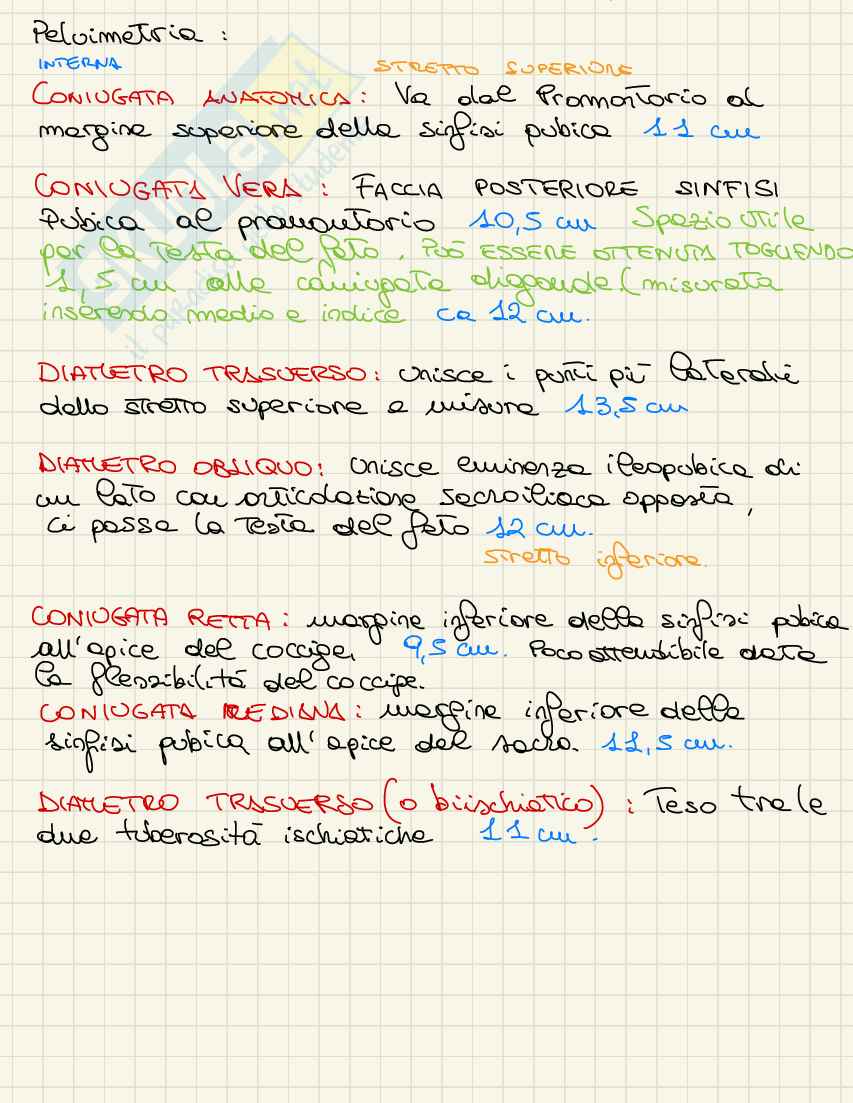 Pelvimetria :
INTERNA
STRETTO SUPERIORE
CONIUGATA ANATOMICA: Va dal Promontorio al
margine superiore della sinfisi pubica 11 cm
CONIUGATA VERA : FACCIA POSTERIORE SINFISI
Pubica al promontorio 10,5 cm Spazio utile
per la testa del feto. PUÒ ESSERE OTTENUTA TOGLIENDO
1,5 cm alla coniugata diagonale (misurata
inserendo medio e indice ca 12 cm.
DIAMETRO TRASVERSO: unisce i punti più laterali
dello stretto superiore e misura 13,5 cm
DIAMETRO OBLIQUO: unisce eminenza ileopubica di
un lato con articolazione sacroiliaca opposta,
ci passa la testa del feto 12 cm.
stretto inferiore.
CONIUGATA RETTA: margine inferiore della sinfisi pubica
all'apice del coccige. 9,5 cm. Poco attendibile data
la flessibilità del coccige.
CONIUGATA MEDIANA: margine inferiore della
sinfisi pubica all'apice del sacro. 11,5 cm.
DIAMETRO TRASVERSO (o biischiatico) : Teso tra le
due tuberosità ischiatiche 11 cm.
SKUOLA.net
il paradiso dello studente